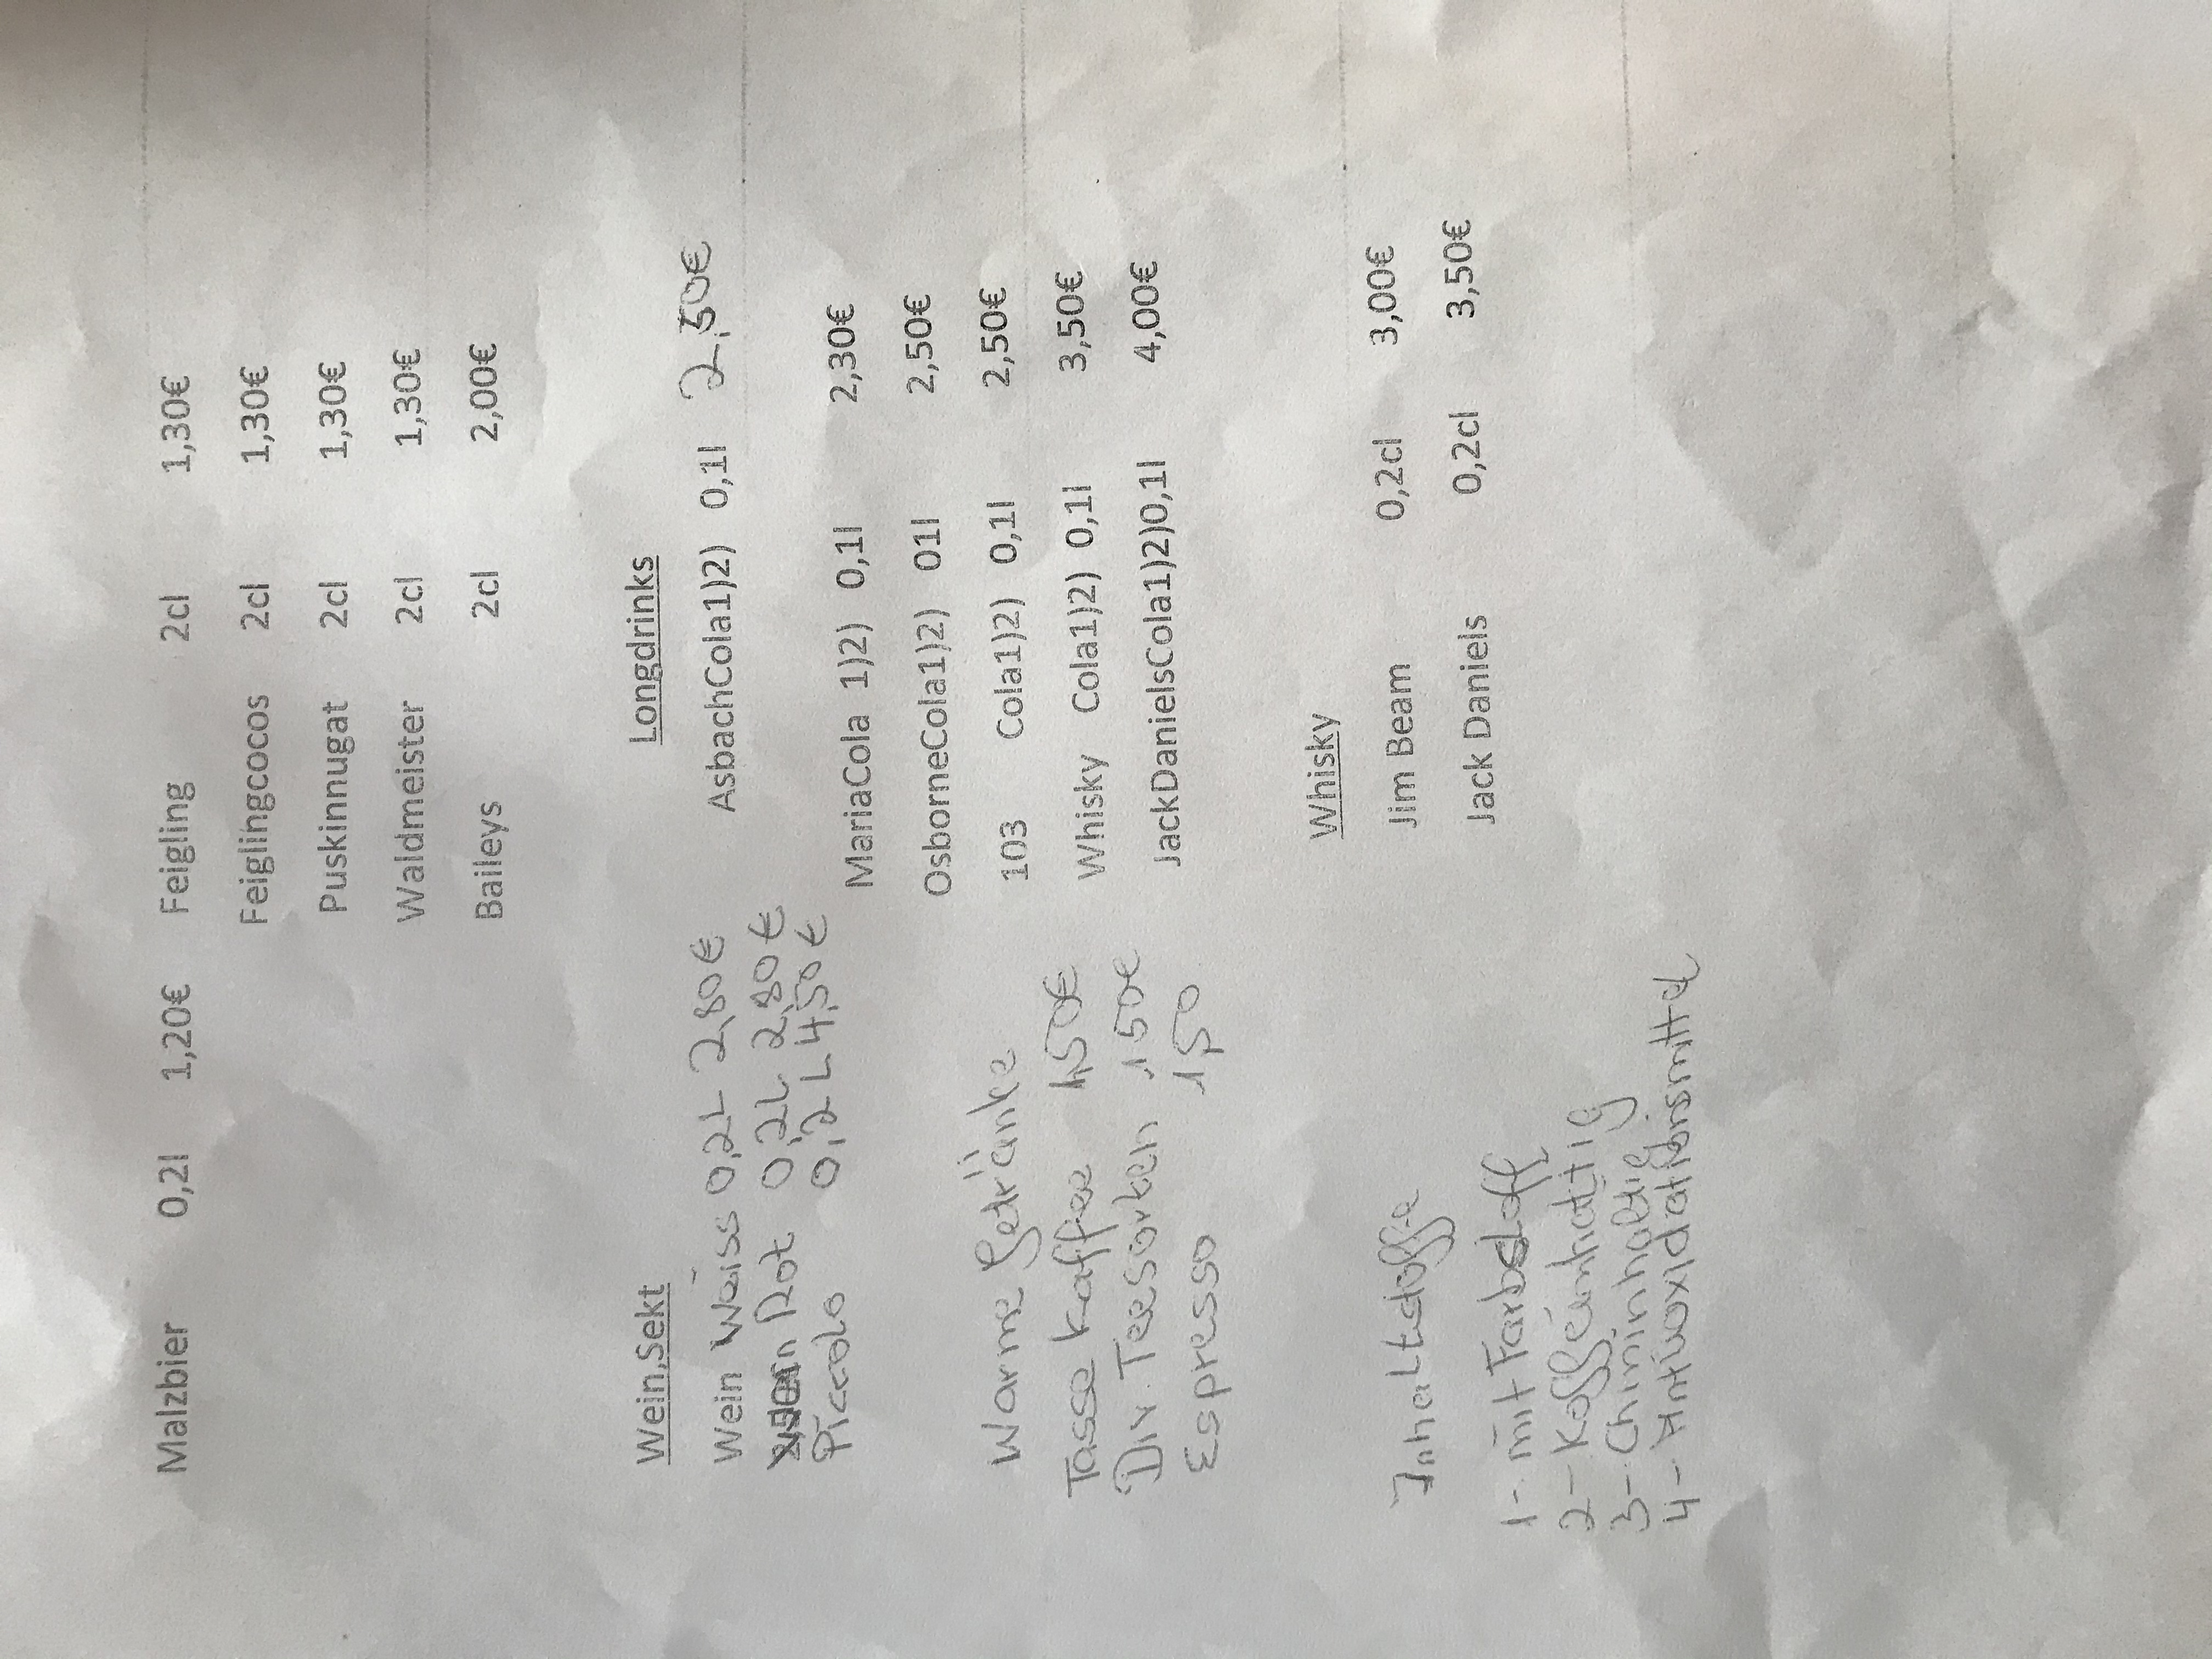 Malzbier 0,2l 1,20€ Feigling 2cl 1,30€
Feiglingcocos 2cl 1,30€
Puskinnugat 2cl 1,30€
Waldmeister 2cl 1,30€
Baileys 2cl 2,00€
Wein,Sekt
Wein Waiss 0,2L 2,80€
Rot 0,2L 2,80€
Piccolo 0,2L 4,50€
Warme Getränke
Tasse Kaffee 1,50€
Div. Teesorten 1,50€
Espresso 1,50
Inhaltstoffe
1- mit Farbstoff
2- Koffeinhaltig
3- Chininhaltig
4- Antioxidationsmittel
Longdrinks
AsbachCola1)2) 0,1l 2,50€
MariaCola 1)2) 0,1l 2,30€
OsborneCola1)2) 01l 2,50€
103 Cola1)2) 0,1l 2,50€
Whisky Cola1)2) 0,1l 3,50€
JackDanielsCola1)2)0,1l 4,00€
Whisky
Jim Beam 0,2cl 3,00€
Jack Daniels 0,2cl 3,50€